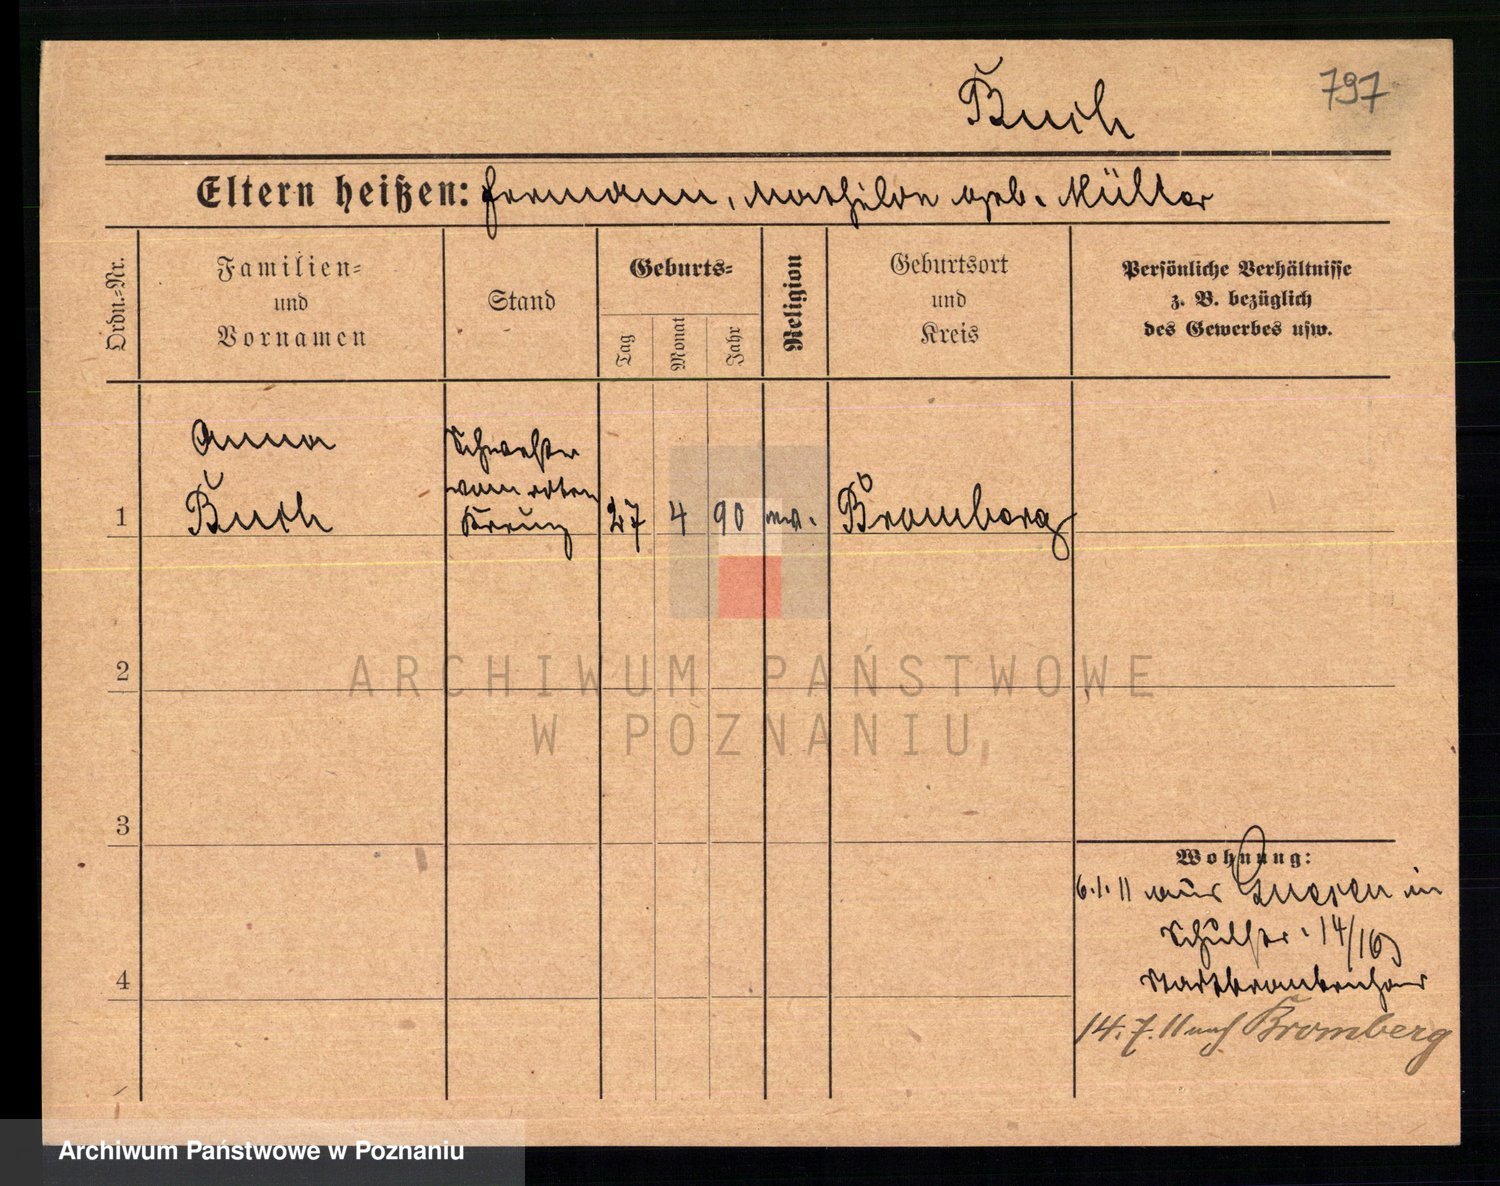 Buch
797
Eltern heißen: Hermann, Mathilde geb. Müller
Ordn.-Nr.
Familien-
und
Vornamen
Stand
Geburts-
Tag
Monat
Jahr
Religion
Geburtsort
und
Kreis
Persönliche Verhältnisse
z. B. bezüglich
des Gewerbes usw.
Anna
Buch
Schwester
vom roten
Kreuz
1
27 4 90
Bromberg
2
3
4
Wohnung:
6.1.11 aus Gnesen in
Schulstr. 14/16
Stadtkrankenhaus
14.7.11 nach Bromberg
ARCHIWUM PAŃSTWOWE
W POZNANIU
Archiwum Państwowe w Poznaniu